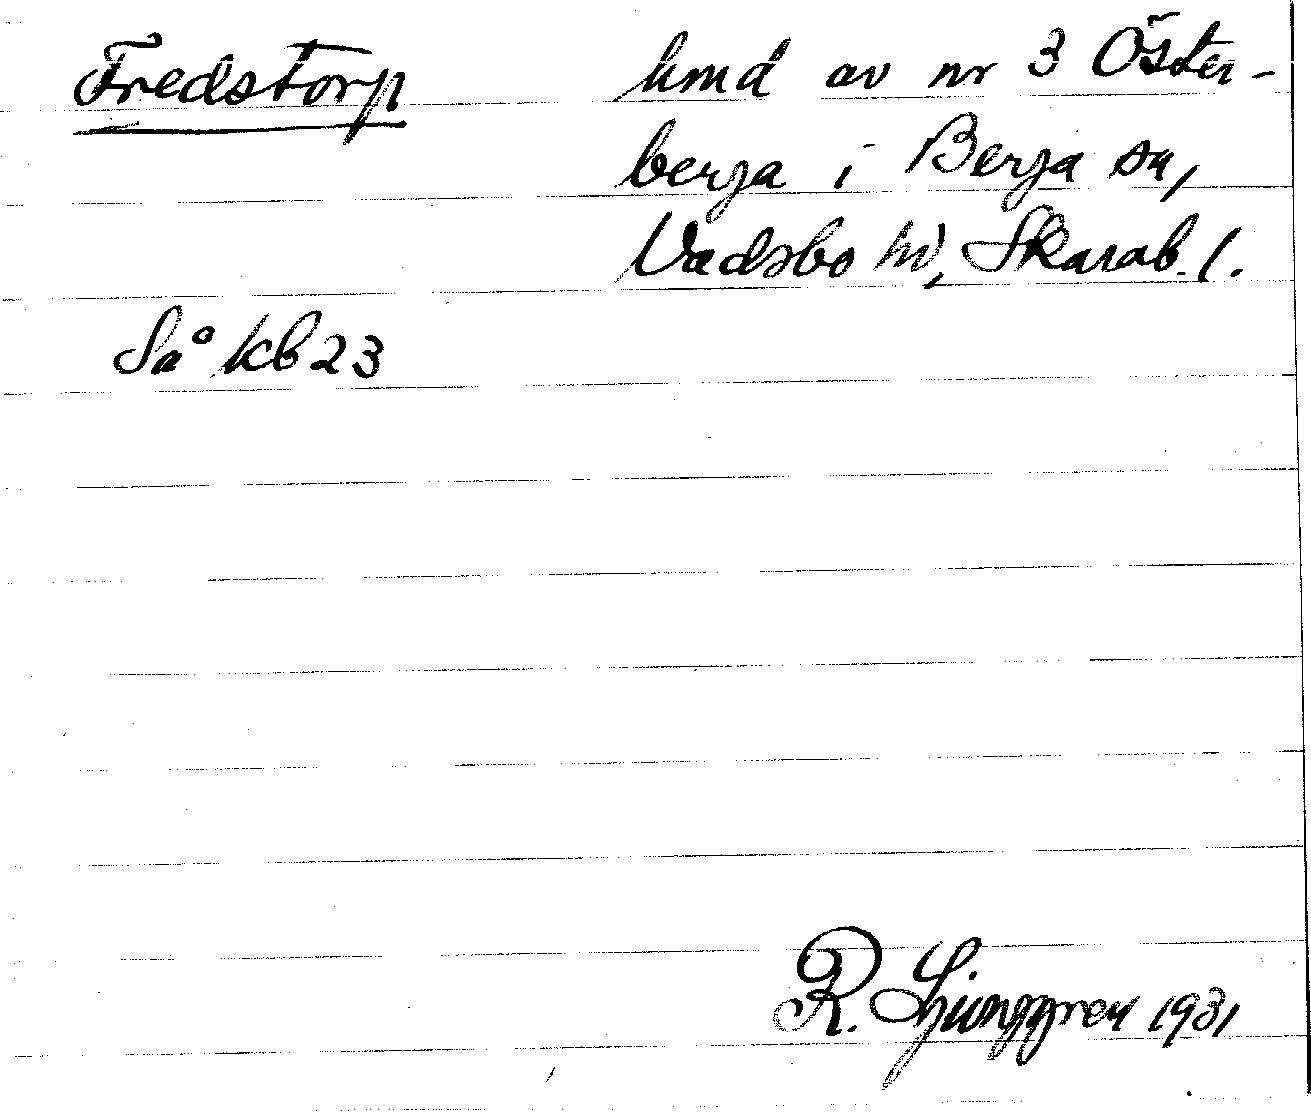 Fredstorp
hmd av nr 3 Öster-
berga i Berga sn,
Vadsbo hd, Skarab. l.
Så kb 23
R. Ljunggren 1931